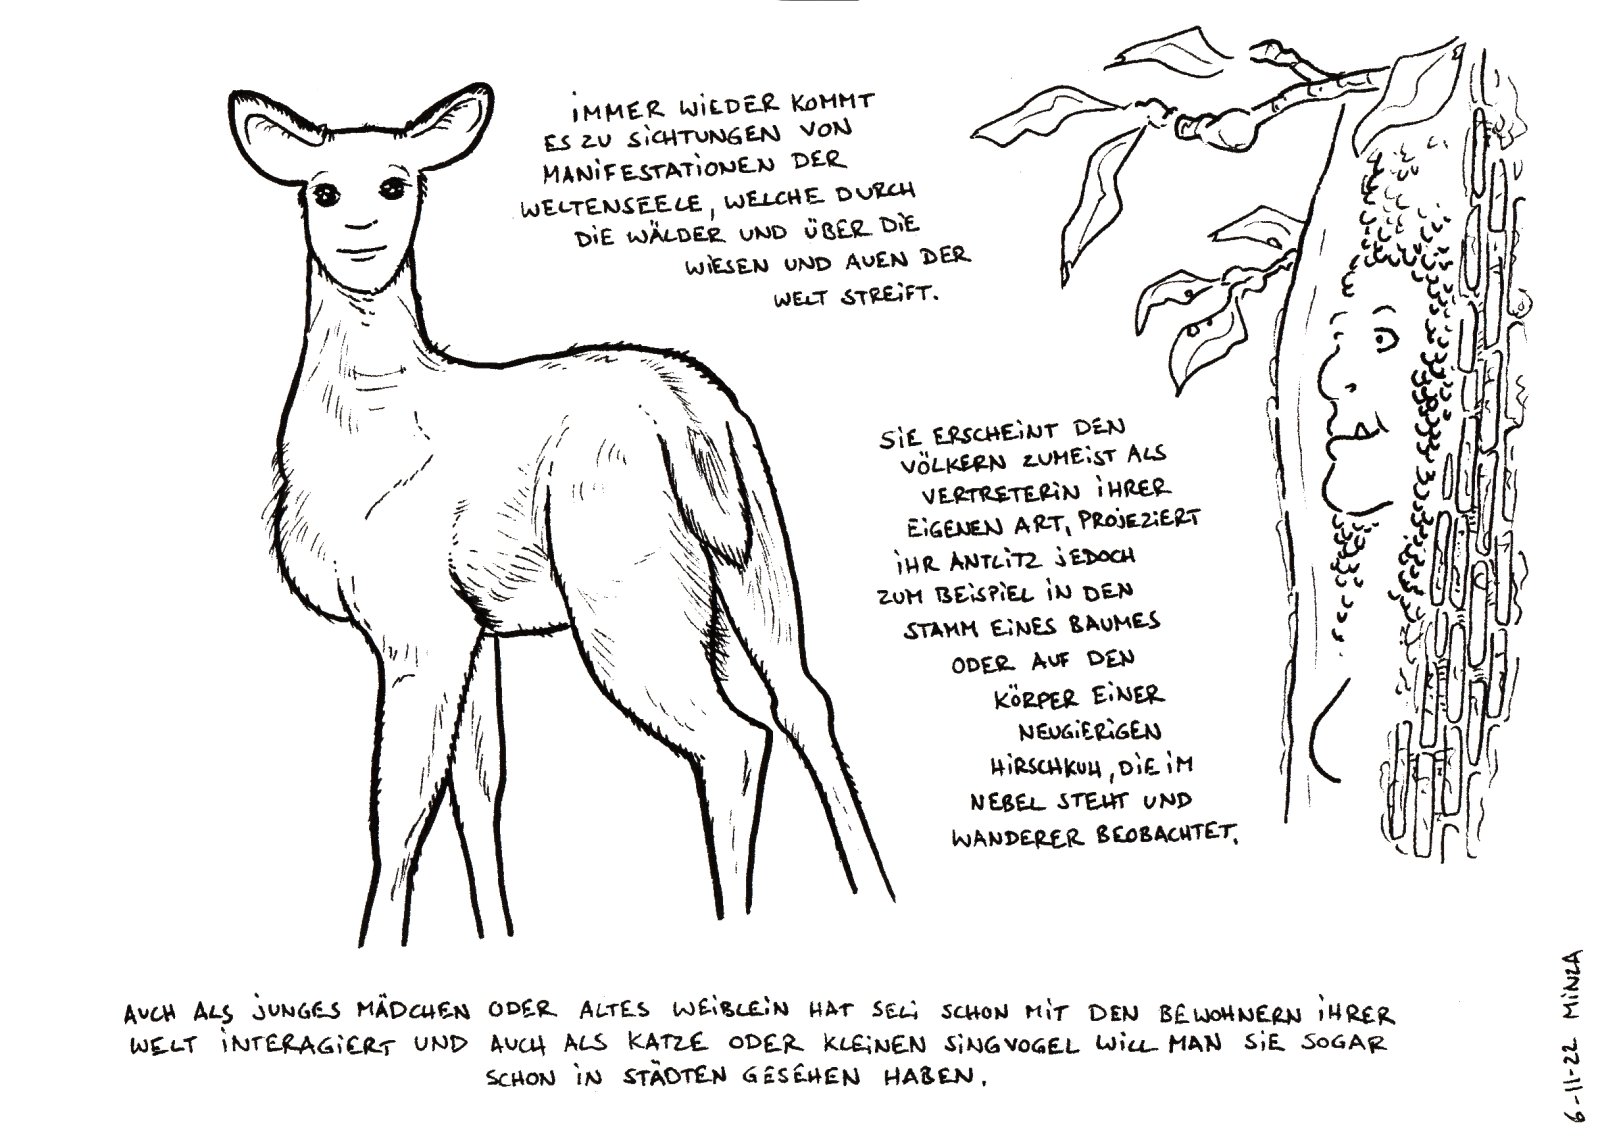 iMMER WiEDER KOMMT
ES ZU SiCHTUNGEN VON
MANiFESTATiONEN DER
WELTENSEELE, WELCHE DURCH
DiE WÄLDER UND ÜBER DiE
WiESEN UND AUEN DER
WELT STREiFT.
SiE ERSCHEiNT DEN
VÖLKERN ZUMEiST ALS
VERTRETERiN iHRER
EiGENEN ART, PROJEZiERT
iHR ANTLiTZ JEDOCH
ZUM BEiSPiEL iN DEN
STAMM EiNES BAUMES
ODER AUF DEN
KÖRPER EiNER
NEUGiERiGEN
HiRSCHKUH, DiE iM
NEBEL STEHT UND
WANDERER BEOBACHTET.
AUCH ALS JUNGES MÄDCHEN ODER ALTES WEiBLEiN HAT SELi SCHON MiT DEN BEWOHNERN iHRER
WELT iNTERAGiERT UND AUCH ALS KATZE ODER KLEiNEN SiNGVOGEL WiLL MAN SiE SOGAR
SCHON iN STÄDTEN GESEHEN HABEN.
6-11-22 MiNZA